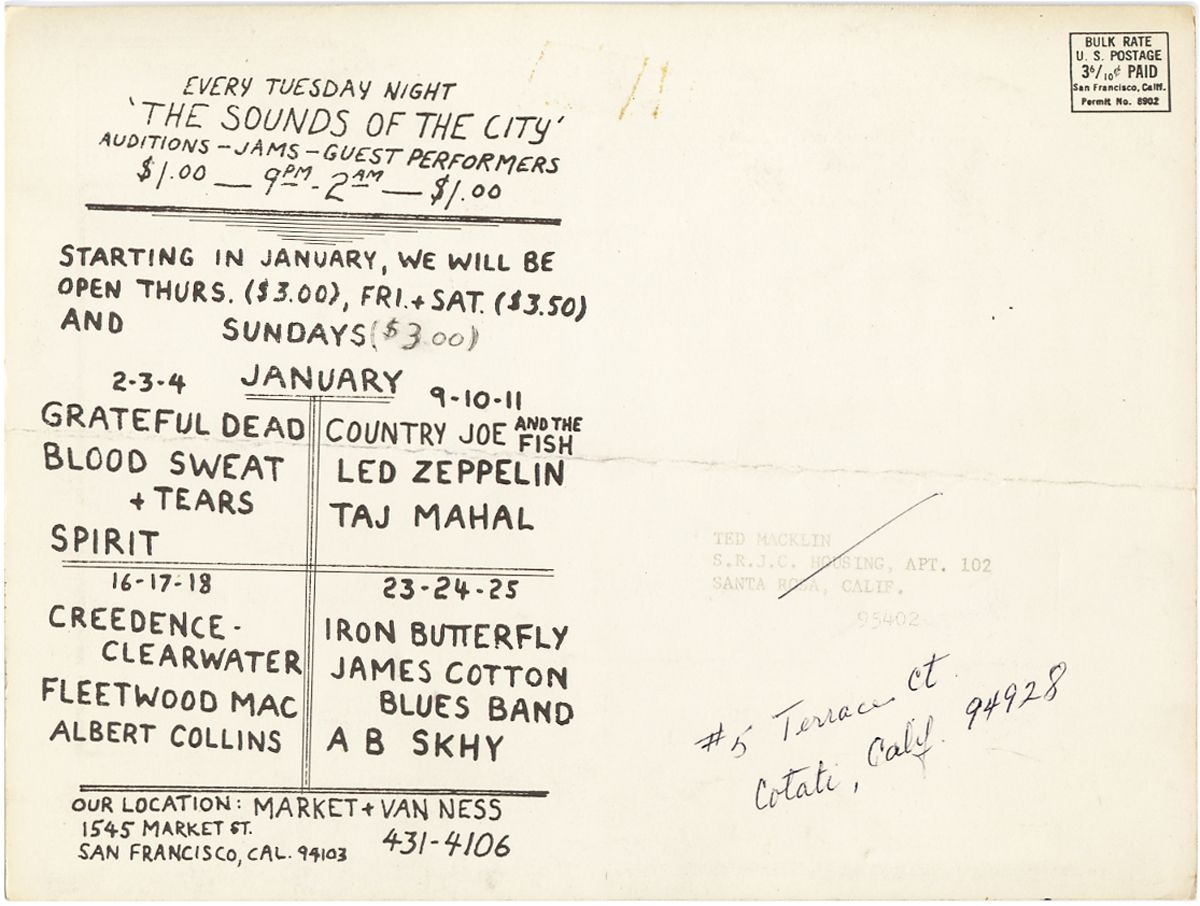 EVERY TUESDAY NIGHT
'THE SOUNDS OF THE CITY'
AUDITIONS - JAMS - GUEST PERFORMERS
$1.00 — 9PM - 2AM — $1.00
STARTING IN JANUARY, WE WILL BE
OPEN THURS. ($3.00), FRI. + SAT. ($3.50)
AND SUNDAYS ($3.00)
JANUARY
2-3-4
GRATEFUL DEAD
BLOOD SWEAT
+ TEARS
SPIRIT
9-10-11
COUNTRY JOE AND THE
FISH
LED ZEPPELIN
TAJ MAHAL
16-17-18
CREEDENCE-
CLEARWATER
FLEETWOOD MAC
ALBERT COLLINS
23-24-25
IRON BUTTERFLY
JAMES COTTON
BLUES BAND
A B SKHY
OUR LOCATION: MARKET + VAN NESS
1545 MARKET ST.
SAN FRANCISCO, CAL. 94103
431-4106
BULK RATE
U. S. POSTAGE
3 6/10¢ PAID
San Francisco, Calif.
Permit No. 8902
TED MACKLIN
S.R.J.C. HOUSING, APT. 102
SANTA ROSA, CALIF.
95402
#5 Terrace Ct.
Cotati, Calif. 94928